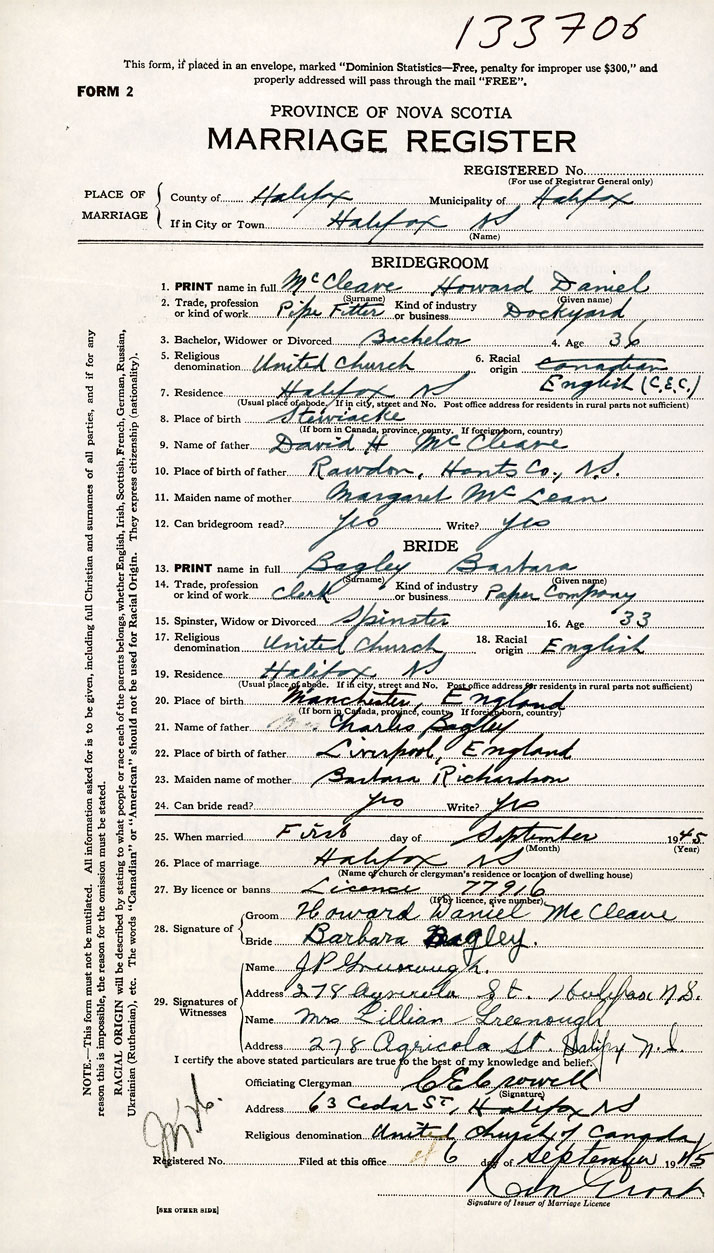 133706
This form, if placed in an envelope, marked "Dominion Statistics—Free, penalty for improper use $300," and
properly addressed will pass through the mail "FREE".
FORM 2
PROVINCE OF NOVA SCOTIA
MARRIAGE REGISTER
REGISTERED No.
(For use of Registrar General only)
PLACE OF MARRIAGE
County of Halifax Municipality of Halifax
If in City or Town Halifax NS
(Name)
BRIDEGROOM
1. PRINT name in full McCleave Howard Daniel
(Surname) (Given name)
2. Trade, profession or kind of work Pipe Fitter Kind of industry or business Dockyard
3. Bachelor, Widower or Divorced Bachelor 4. Age 36
5. Religious denomination United Church 6. Racial origin Canadian
English (C.E.C.)
7. Residence Halifax NS
(Usual place of abode. If in city, street and No. Post office address for residents in rural parts not sufficient)
8. Place of birth Stewiacke
(If born in Canada, province, county. If foreign born, country)
9. Name of father David H McCleave
10. Place of birth of father Rawdon, Hants Co., N.S.
11. Maiden name of mother Margaret McLean
12. Can bridegroom read? Yes Write? Yes
BRIDE
13. PRINT name in full Bagley Barbara
(Surname) (Given name)
14. Trade, profession or kind of work Clerk Kind of industry or business Paper Company
15. Spinster, Widow or Divorced Spinster 16. Age 33
17. Religious denomination United Church 18. Racial origin English
19. Residence Halifax NS
(Usual place of abode. If in city, street and No. Post office address for residents in rural parts not sufficient)
20. Place of birth Manchester, England
(If born in Canada, province, county. If foreign born, country)
21. Name of father Charles Bagley
22. Place of birth of father Liverpool, England
23. Maiden name of mother Barbara Richardson
24. Can bride read? Yes Write? Yes
25. When married First day of September 1945
(Month) (Year)
26. Place of marriage Halifax NS
(Name of church or clergyman's residence or location of dwelling house)
27. By licence or banns Licence 77916
(If by licence, give number)
28. Signature of
Groom Howard Daniel McCleave
Bride Barbara Bagley.
29. Signatures of Witnesses
Name J P Greenough.
Address 278 Agricola St. Halifax N.S.
Name Mrs Lillian Greenough
Address 278 Agricola St. Halifax N.S.
I certify the above stated particulars are true to the best of my knowledge and belief.
Officiating Clergyman C E Crowell
(Signature)
Address 63 Cedar St, Halifax NS
Religious denomination United Church of Canada
Registered No. Filed at this office 6 day of September 1945
Signature of Issuer of Marriage Licence
[SEE OTHER SIDE]
NOTE.—This form must not be mutilated. All information asked for is to be given, including full Christian and surnames of all parties, and if for any
reason this is impossible, the reason for the omission must be stated.
RACIAL ORIGIN will be described by stating to what people or race each of the parents belongs, whether English, Irish, Scottish, French, German, Russian,
Ukrainian (Ruthenian), etc. The words "Canadian" or "American" should not be used for Racial Origin. They express citizenship (nationality).